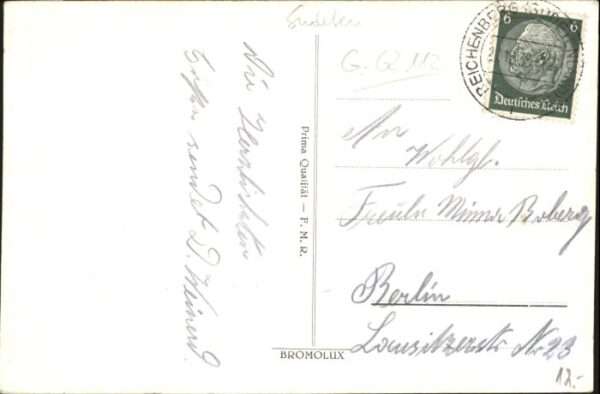 Sudeten
G. Q 112
Die Herzlichsten
Grüße sendet D. Weinert.
Prima Qualität — F. M. R.
BROMOLUX
REICHENBERG
6 6
Deutsches Reich
An
Wohlgb.
Fräuln Minna Boberg
Berlin
Lausitzerstr Nr 23
12.-